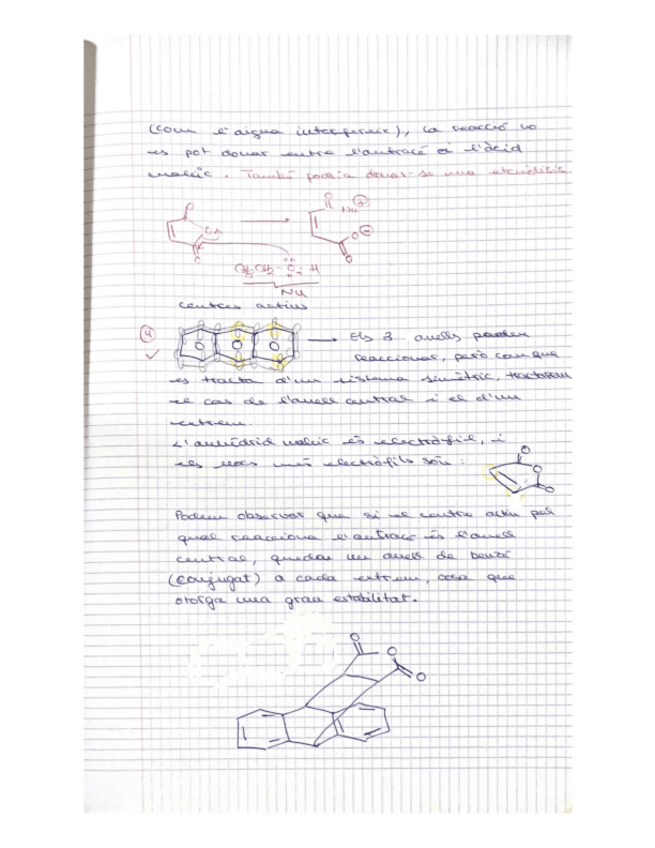 (com l'aigua interfereix), la reacció no
es pot donar entre l'antracé i l'àcid
maleic. També podria donar-se una etanòlisis
O
O
O
O Nu ⊕
O ⊖
O
CH3CH2-O-H
Nu
centres actius
4
Els 3 anells poden
reaccionar, però com que
es tracta d'un sistema simètric, tractarem
el cas de l'anell central i el d'un
extrem.
L'anhídrid maleic és electròfil, i
els llocs més electròfils són:
O
O
O
Podem observar que si el centre actiu pel
qual reacciona l'antracé és l'anell
central, queden un anell de benzè
(conjugat) a cada extrem, cosa que
otorga una gran estabilitat.
O
O
O